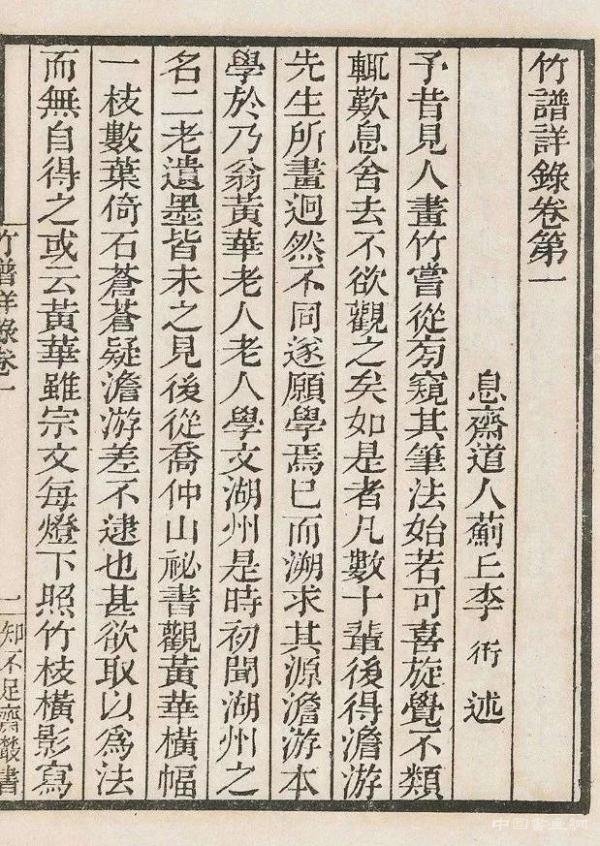 竹譜詳錄卷第一
息齋道人薊丘李衎述
予昔見人畫竹嘗從旁窺其筆法始若可喜旋覺不類
輒歎息舍去不欲觀之矣如是者凡數十輩後得澹游
先生所畫迥然不同遂願學焉已而溯求其源澹游本
學於乃翁黃華老人老人學文湖州是時初聞湖州之
名二老遺墨皆未之見後從喬仲山祕書觀黃華橫幅
一枝數葉倚石蒼蒼疑澹游差不逮也甚欲取以爲法
而無自得之或云黃華雖宗文每燈下照竹枝橫影寫
竹譜詳錄卷一
一
知不足齋叢書
中国書畫網